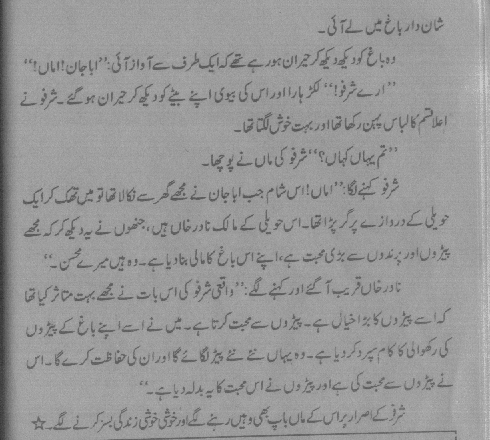 شان دار باغ میں لے آئی۔
وہ باغ کو دیکھ دیکھ کر حیران ہو رہے تھے کہ ایک طرف سے آواز آئی: ”ابا جان! اماں!“
”ارے شرفو!“ لکڑہارا اور اس کی بیوی اپنے بیٹے کو دیکھ کر حیران ہو گئے۔ شرفو نے
اعلا قسم کا لباس پہن رکھا تھا اور بہت خوش لگتا تھا۔
”تم یہاں کہاں؟“ شرفو کی ماں نے پوچھا۔
شرفو کہنے لگا: ”اماں! اس شام جب ابا جان نے مجھے گھر سے نکالا تھا تو میں تھک کر ایک
حویلی کے دروازے پر گر پڑا تھا۔ اس حویلی کے مالک نادر خاں ہیں، جنھوں نے یہ دیکھ کر کہ مجھے
پیڑوں اور پرندوں سے بڑی محبت ہے، اپنے اس باغ کا مالی بنا دیا ہے۔ وہ ہیں میرے محسن۔“
نادر خاں قریب آ گئے اور کہنے لگے: ”واقعی شرفو کی اس بات نے مجھے بہت متاثر کیا تھا
کہ اسے پیڑوں کا بڑا خیال ہے۔ پیڑوں سے محبت کرتا ہے۔ میں نے اسے اپنے باغ کے پیڑوں
کی رکھوالی کا کام سپرد کر دیا ہے۔ وہ یہاں نئے نئے پیڑ لگائے گا اور ان کی حفاظت کرے گا۔ اس
نے پیڑوں سے محبت کی ہے اور پیڑوں نے اس محبت کا یہ بدلہ دیا ہے۔“
شرفو کے اصرار پر اس کے ماں باپ بھی وہیں رہنے لگے اور خوشی خوشی زندگی بسر کرنے لگے۔ ☆